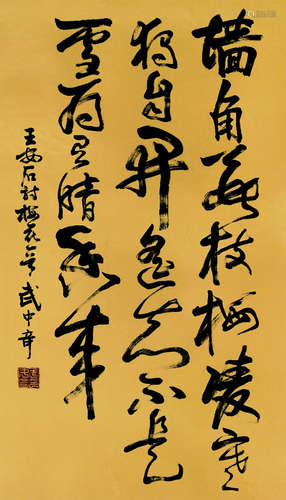 墙角数枝梅凌寒
独自开遥知不是
雪为有暗香来
王安石诗梅花一首 武中奇